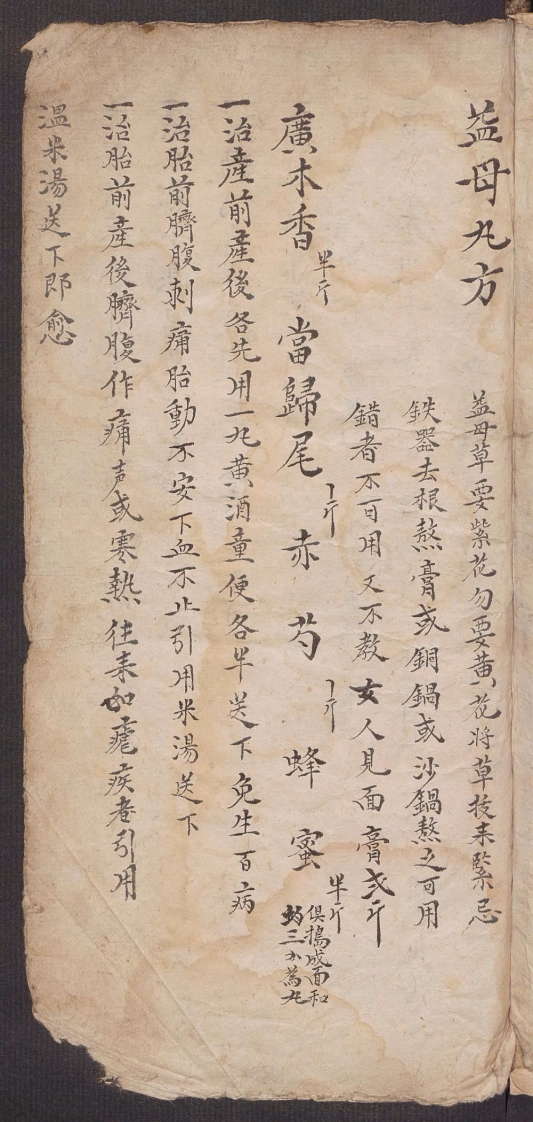 益母丸方
益母草要紫花勿要黄花将草扙来緊忌
鉄器去根熬膏或銅鍋或沙鍋熬之可用
錯者不可用又不教女人見面膏弍斤
廣木香半斤 當歸尾一斤 赤芍一斤 蜂蜜半斤 俱搗成面和
蚂三分為丸
一治產前產後各先用一丸黄酒童便各半送下免生百病
一治胎前臍腹刺痛胎動不安下血不止引用米湯送下
一治胎前產後臍腹作痛声或寒熱往来如瘧疾者引用
温米湯送下即愈